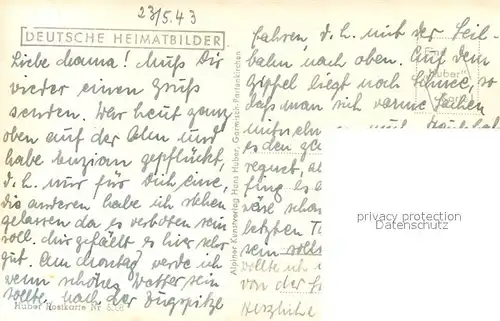 23/5.43
DEUTSCHE HEIMATBILDER
Liebe Mama! Muß Dir
wieder einen Gruß
senden. War heut ganz
oben auf der Alm und
habe Enzian gepflückt,
d.h. nur für Dich eine,
die anderen habe ich stehen
gelassen da es verboten sein
soll. Mir gefällt es hier sehr
gut. Am Montag werde ich
wenn schönes Wetter sein
sollte, nach der Zugspitze
Huber Postkarte Nr.
Alpiner Kunstverlag Hans Huber, Garmisch-Partenkirchen
fahren, d.h. mit der Seil-
bahn nach oben. Auf dem
Gipfel liegt noch Schnee, so
daß man sich warme Sachen
mitnehmen muß.
es den
regnet,
fing es
wäre
letzten
sein sollte
wollte ich
von der
Herzliche
Eine
"Huber"
Karte
privacy protection
Datenschutz